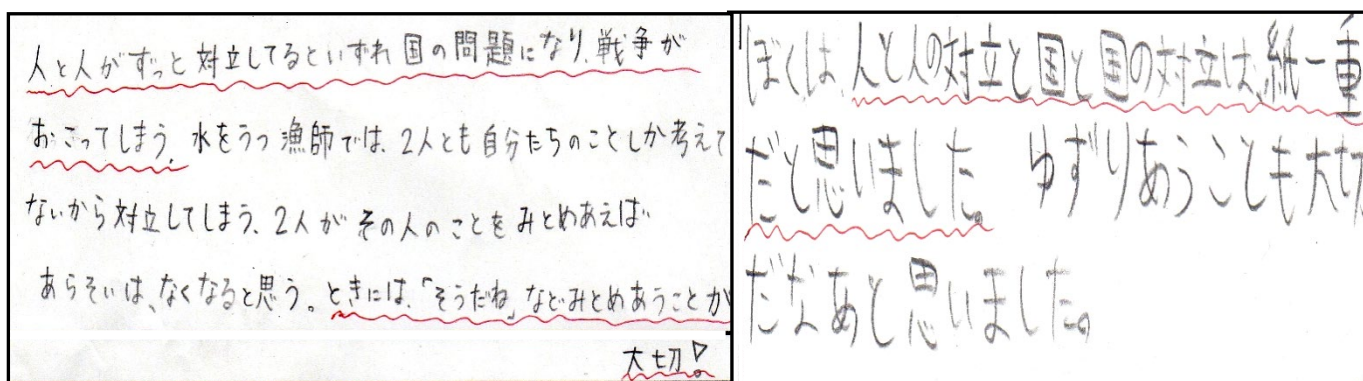 人と人がずっと対立してるといずれ国の問題になり、戦争が
おこってしまう。水をうつ漁師では、2人とも自分たちのことしか考えて
ないから対立してしまう、2人がその人のことをみとめあえば
あらそいは、なくなると思う。ときには、「そうだね」などみとめあうことが
大切!。
ぼくは、人と人の対立と国と国の対立は、紙一重
だと思いました。ゆずりあうことも大切
だなあと思いました。